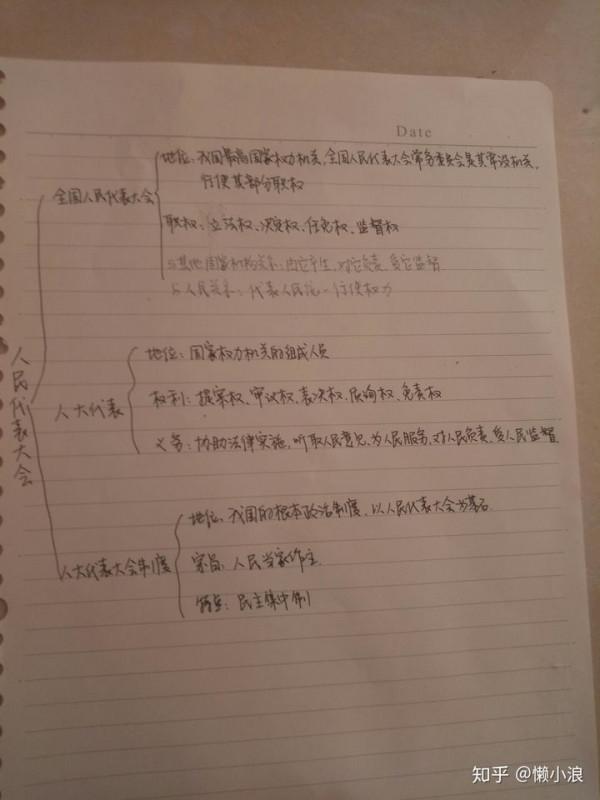 Date
地位：我国最高国家权力机关，全国人民代表大会常务委员会是其常设机关，
行使其部分职权
全国人民代表大会
职权：立法权、决定权、任免权、监督权
与其他国家机构关系：由它产生，对它负责，受它监督
与人民关系：代表人民统一行使权力
人民代表大会
地位：国家权力机关的组成人员
人大代表
权利：提案权、审议权、表决权、质询权、免责权
义务：协助法律实施，听取人民意见，为人民服务，对人民负责，受人民监督
地位：我国的根本政治制度，以人民代表大会为基石
人大代表大会制度
宗旨：人民当家作主
特点：民主集中制
知乎 @懒小浪